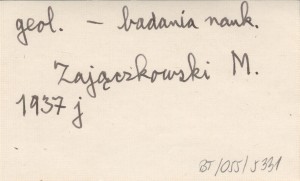 geol. - badania nauk.
Zajączkowski M.
1937 j
BT/055/5331